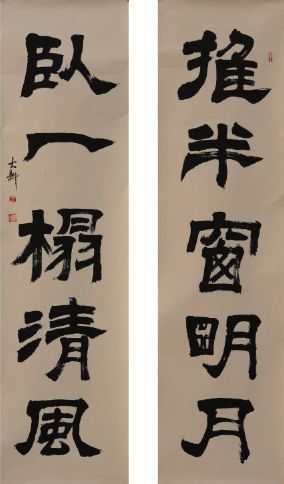 推半窗明月
臥一榻清風
大斬